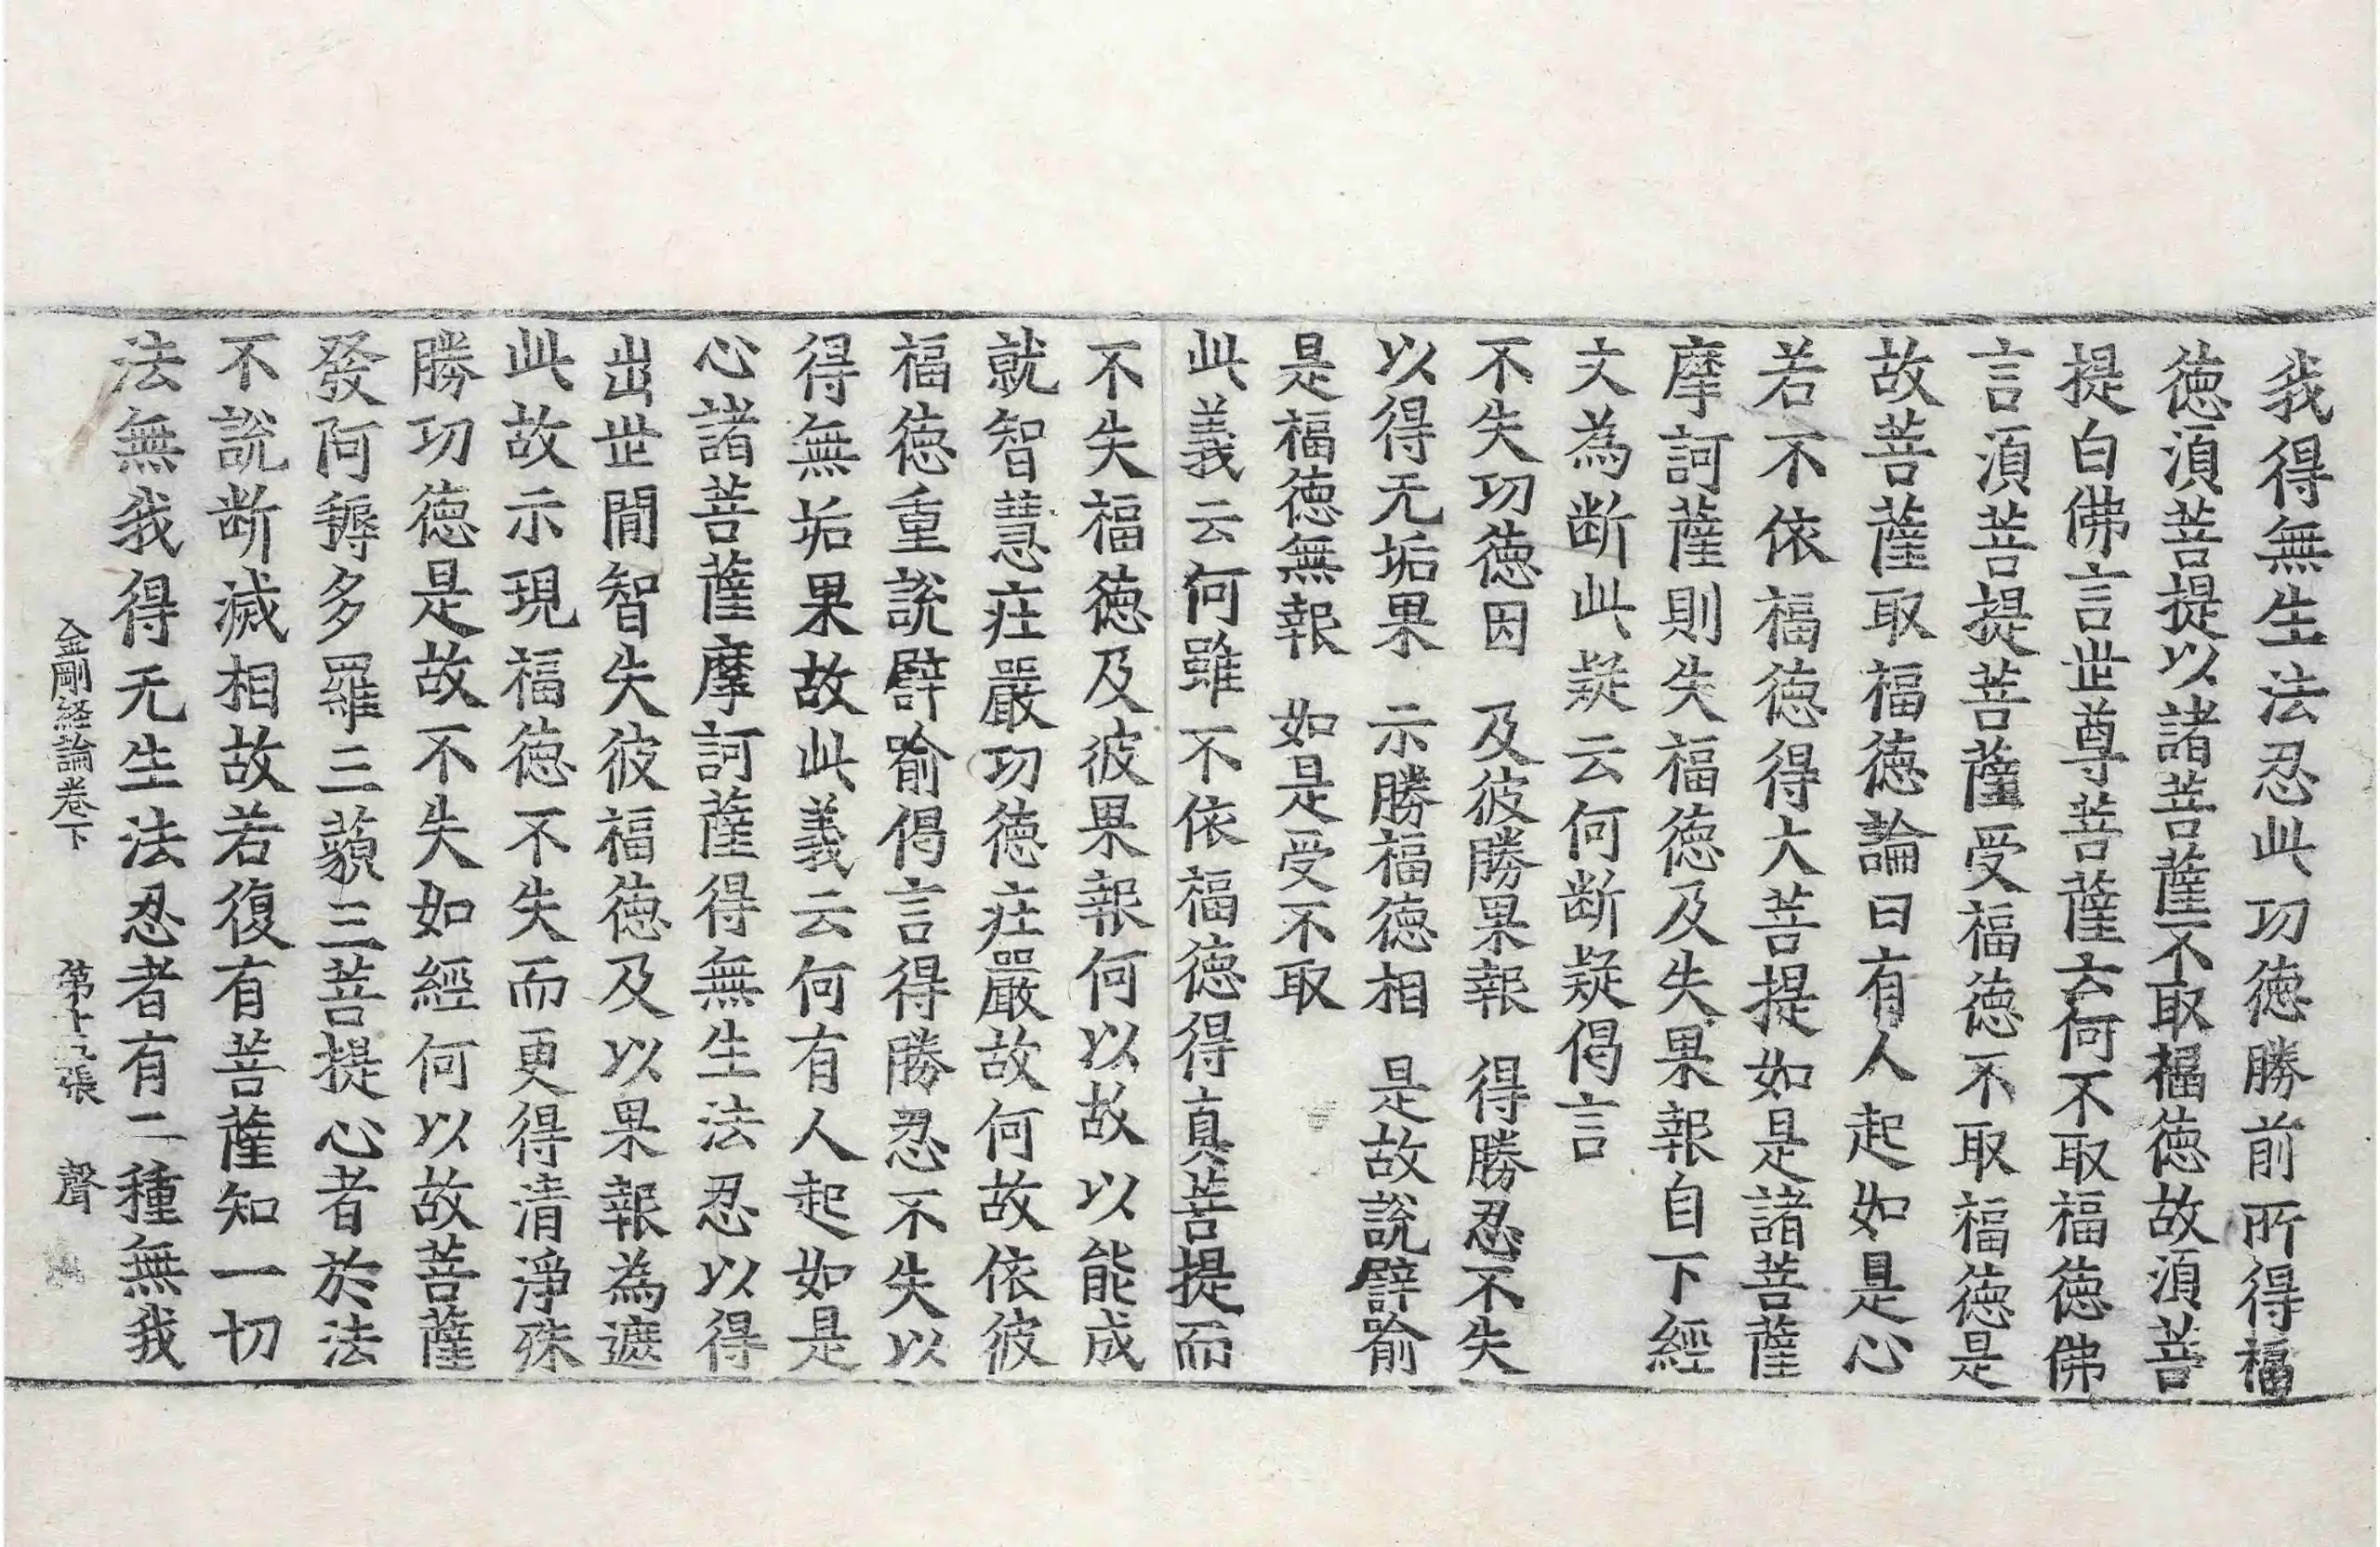 我得無生法忍此功徳勝前所得福
徳湏菩提以諸菩薩不取福徳故湏菩
提白佛言世尊菩薩云何不取福徳佛
言湏菩提菩薩受福徳不取福徳是
故菩薩取福徳論曰有人起如是心
若不依福徳得大菩提如是諸菩薩
摩訶薩則失福徳及失果報自下經
文為断此疑云何断疑偈言
不失功徳因　及彼勝果報　得勝忍不失
以得无垢果　示勝福徳相　是故說譬喻
是福徳無報　如是受不取
此義云何雖不依福徳得真菩提而
不失福徳及彼果報何以故以能成
就智慧庄嚴功徳庄嚴故何故依彼
福徳重說譬喻偈言得勝忍不失以
得無垢果故此義云何有人起如是
心諸菩薩摩訶薩得無生法忍以得
出世閒智失彼福徳及以果報為遮
此故示現福徳不失而更得清淨殊
勝功徳是故不失如經何以故菩薩
發阿耨多羅三藐三菩提心者於法
不說断滅相故若復有菩薩知一切
法無我得无生法忍者有二種無我
金剛経論卷下　第十　張　聲